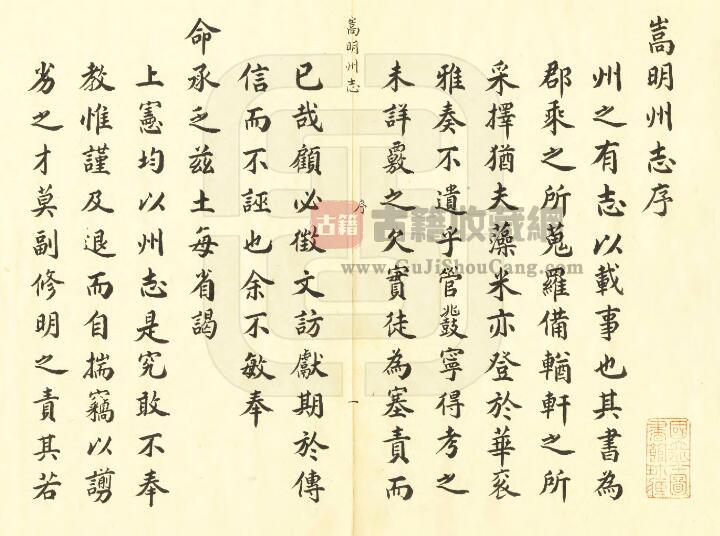 嵩明州志序
州之有志以載事也其書為
郡乘之所蒐羅備輶軒之所
采擇猶夫藻米亦登於華袞
雅奏不遺乎管鼗寧得考之
未詳覈之欠實徒為塞責而
嵩明州志
序
一
已哉顧必徵文訪獻期於傳
信而不誣也余不敏奉
命承乏茲土每省謁
上憲均以州志是究敢不奉
教惟謹及退而自揣竊以譾
劣之才莫副修明之責其若
古籍
古籍收藏網
www.GuJiShouCang.com